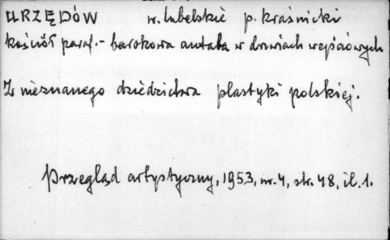 URZĘDÓW w. lubelskie p. kraśnicki
kościół paraf. - barokowa antaba w drzwiach wejściowych
Z nieznanego dziedzictwa plastyki polskiej.
Przegląd artystyczny, 1953, nr. 4, str. 48, il. 1.